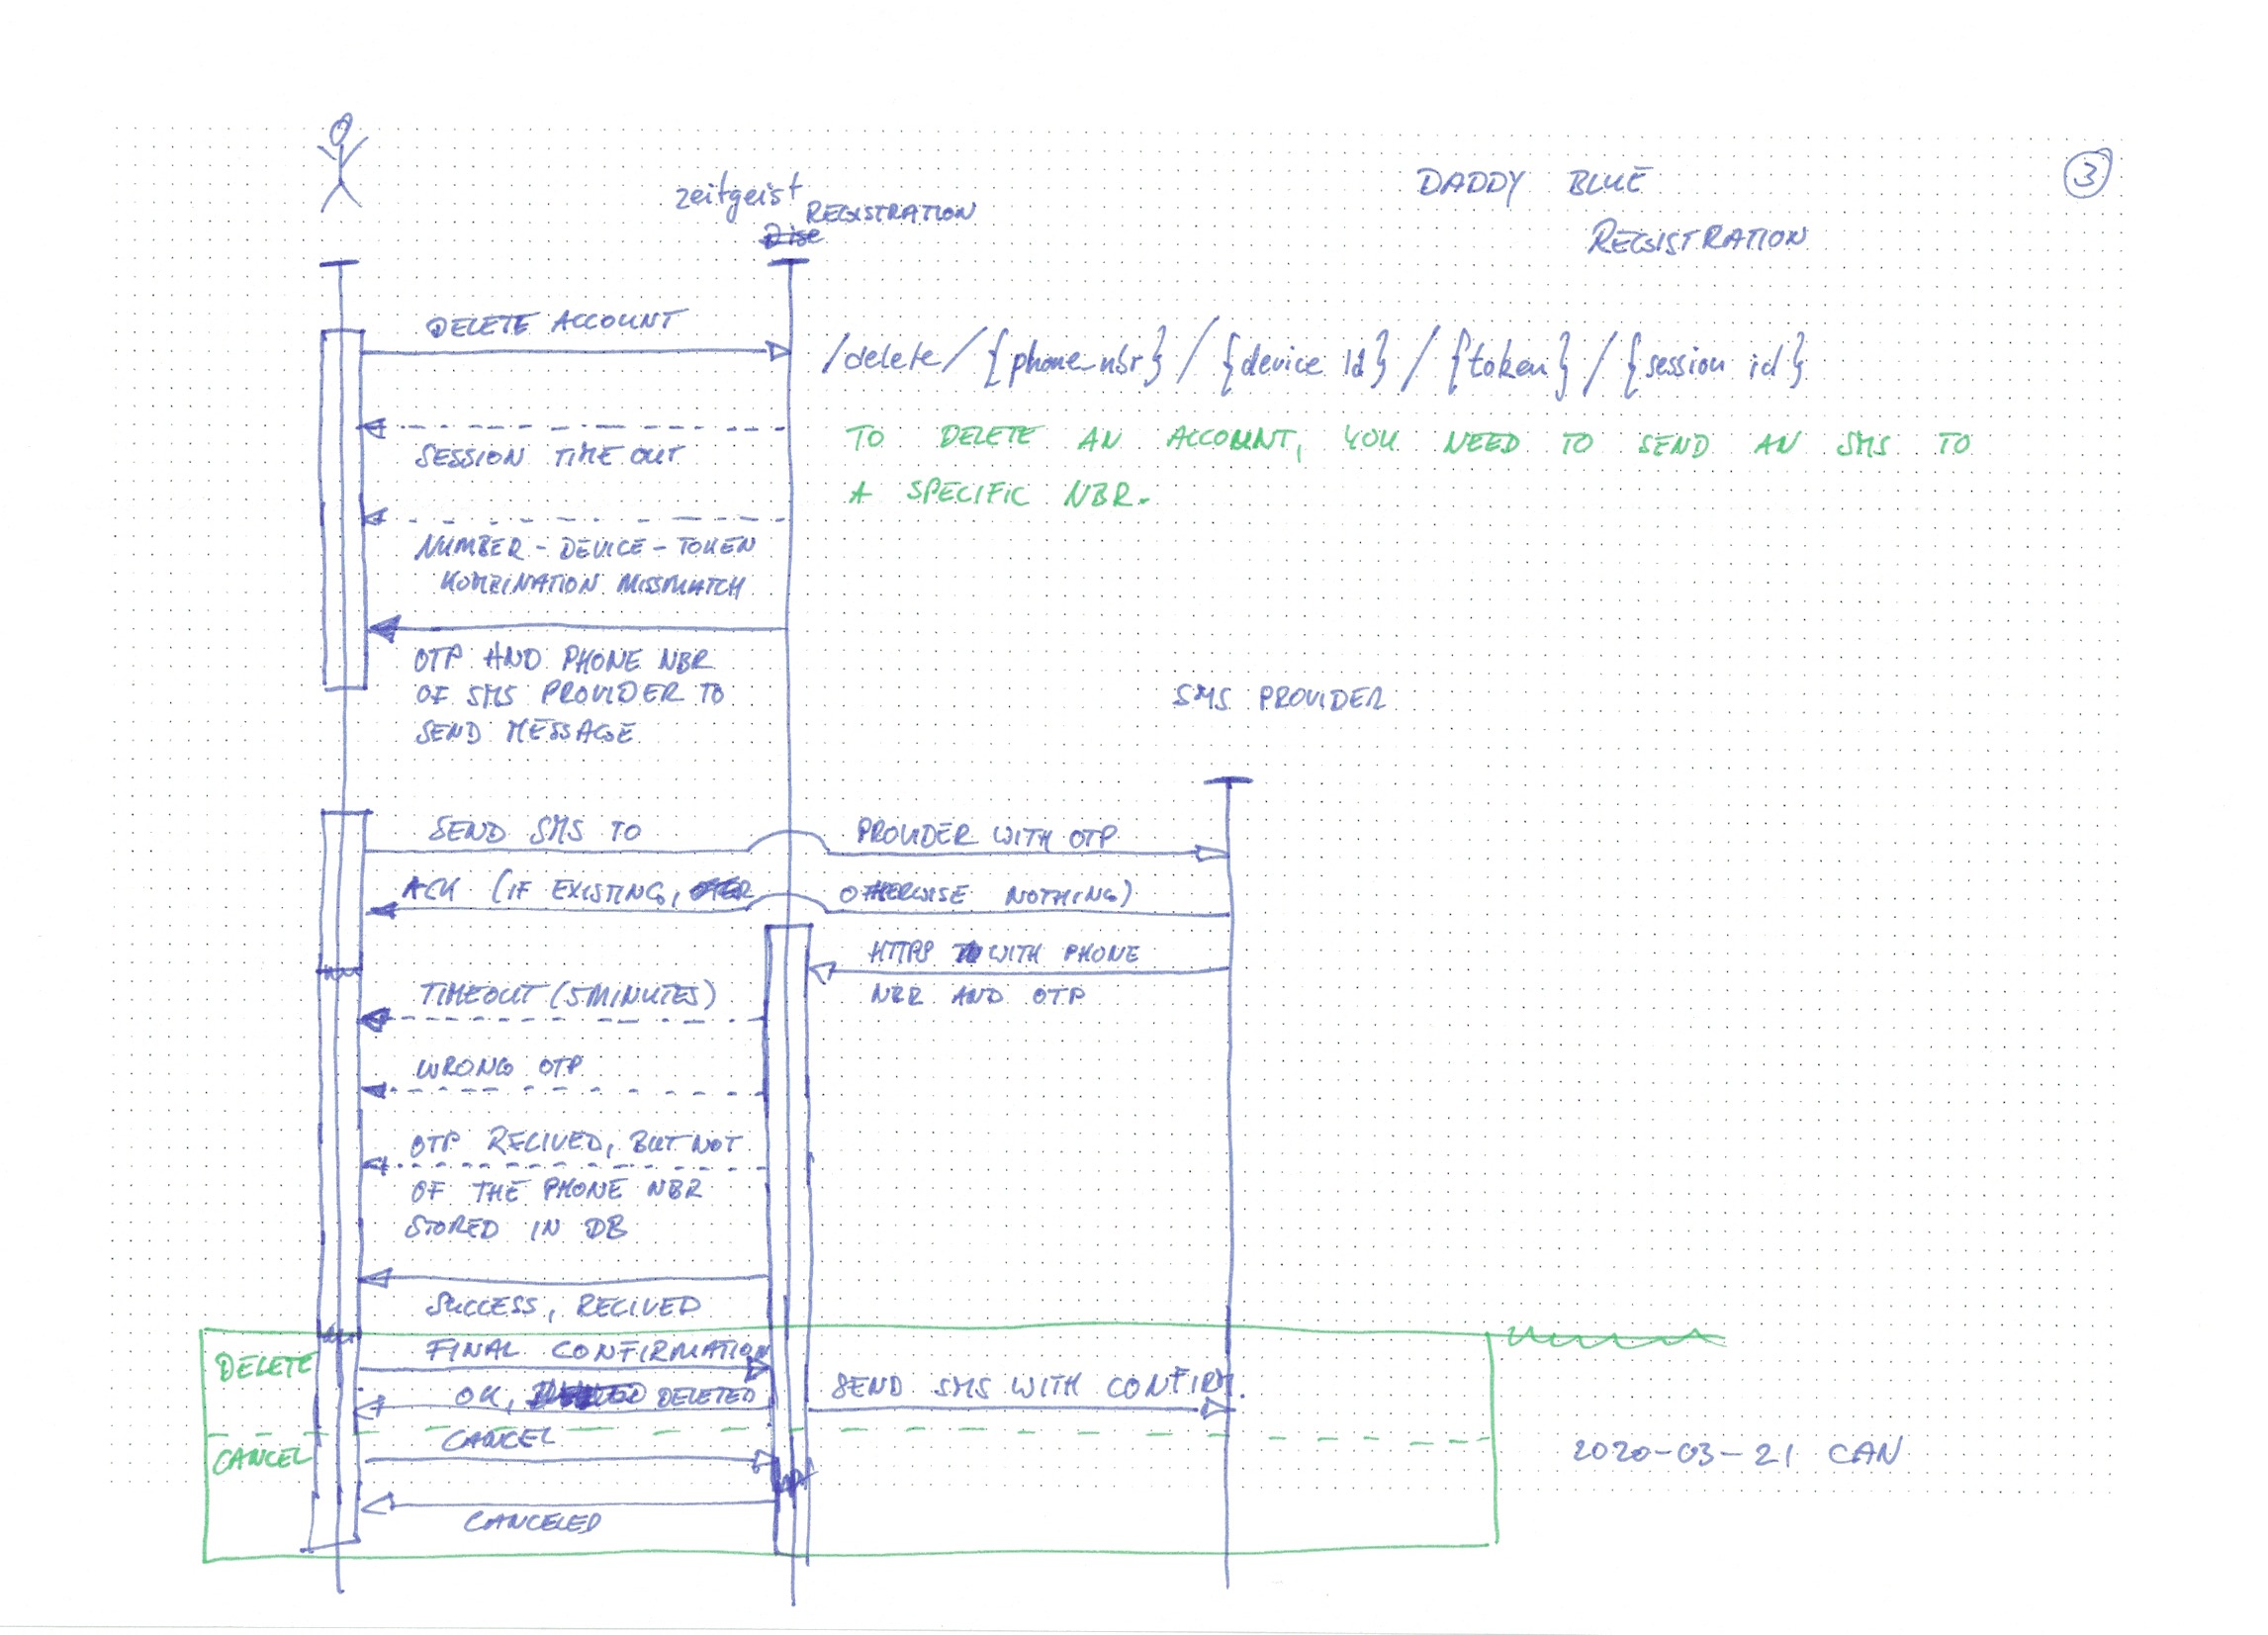 DADDY BLUE
REGISTRATION
3
zeitgeist
REGISTRATION
DELETE ACCOUNT
/delete/{phone nbr}/{device id}/{token}/{session id}
SESSION TIME OUT
TO DELETE AN ACCOUNT, YOU NEED TO SEND AN SMS TO
A SPECIFIC NBR.
NUMBER-DEVICE-TOKEN
KOMBINATION MISSMATCH
OTP AND PHONE NBR
OF SMS PROVIDER TO
SEND MESSAGE
SMS PROVIDER
SEND SMS TO PROVIDER WITH OTP
ACK (IF EXISTING, OTHERWISE NOTHING)
HTTPS WITH PHONE
NBR AND OTP
TIMEOUT (5 MINUTES)
WRONG OTP
OTP RECIVED, BUT NOT
OF THE PHONE NBR
STORED IN DB
SUCCESS, RECIVED
DELETE
FINAL CONFIRMATION
OK, DELETED
SEND SMS WITH CONFIRM.
CANCEL
CANCEL
CANCELED
2020-03-21 CAN